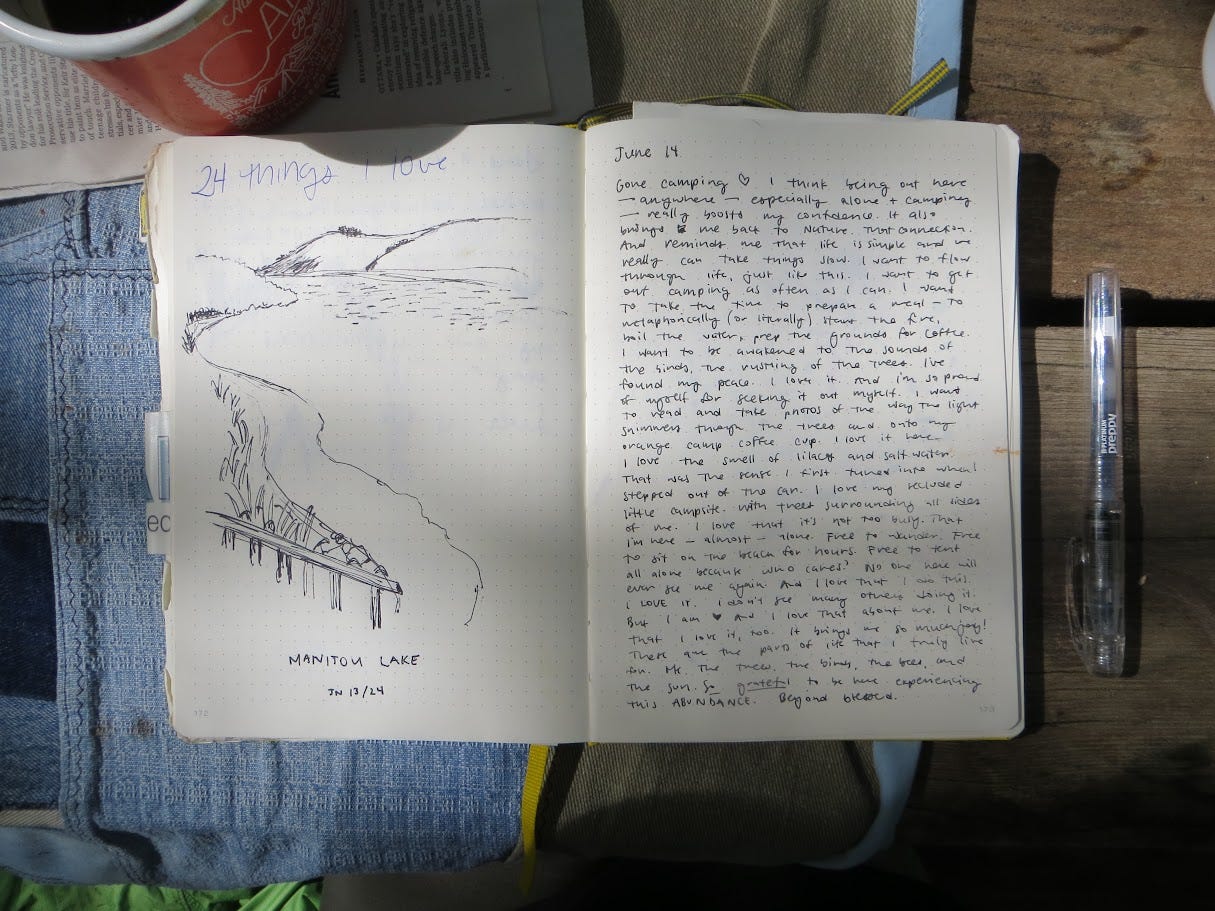 24 things I love
MANITOU LAKE
JN 13/24
172
June 14
Gone camping ♡ I think being out here
— anywhere — especially alone + camping
— really boosts my confidence. It also
brings me back to Nature. That connection.
And reminds me that life is simple and we
really can take things slow. I want to flow
through life, just like this. I want to get
out camping as often as I can. I want
to take the time to prepare a meal - to
metaphorically (or literally) start the fire,
boil the water, prep the grounds for coffee.
I want to be awakened to the sounds of
the birds, the rustling of the trees. I've
found my peace. I love it. And I'm so proud
of myself for seeking it out myself. I want
to read and take photos of the way the light
shimmers through the trees and onto my
orange camp coffee cup. I love it here.
I love the smell of lilacs and salt water.
That was the sense I first tuned into when I
stepped out of the car. I love my secluded
little campsite. With trees surrounding all sides
of me. I love that it's not too busy. That
I'm here - almost - alone. Free to wander. Free
to sit on the beach for hours. Free to tent
all alone because who cares? No one here will
ever see me again. And I love that I do this.
I LOVE IT. I don't see many others doing it.
But I am ♥ And I love that about me. I love
that I love it, too. It brings me so much joy!
These are the parts of life that I truly live
for. Me. The trees, the birds, the bees, and
the sun. So grateful to be here experiencing
this ABUNDANCE. Beyond blessed.
173
PLATINUM
preppy
ec